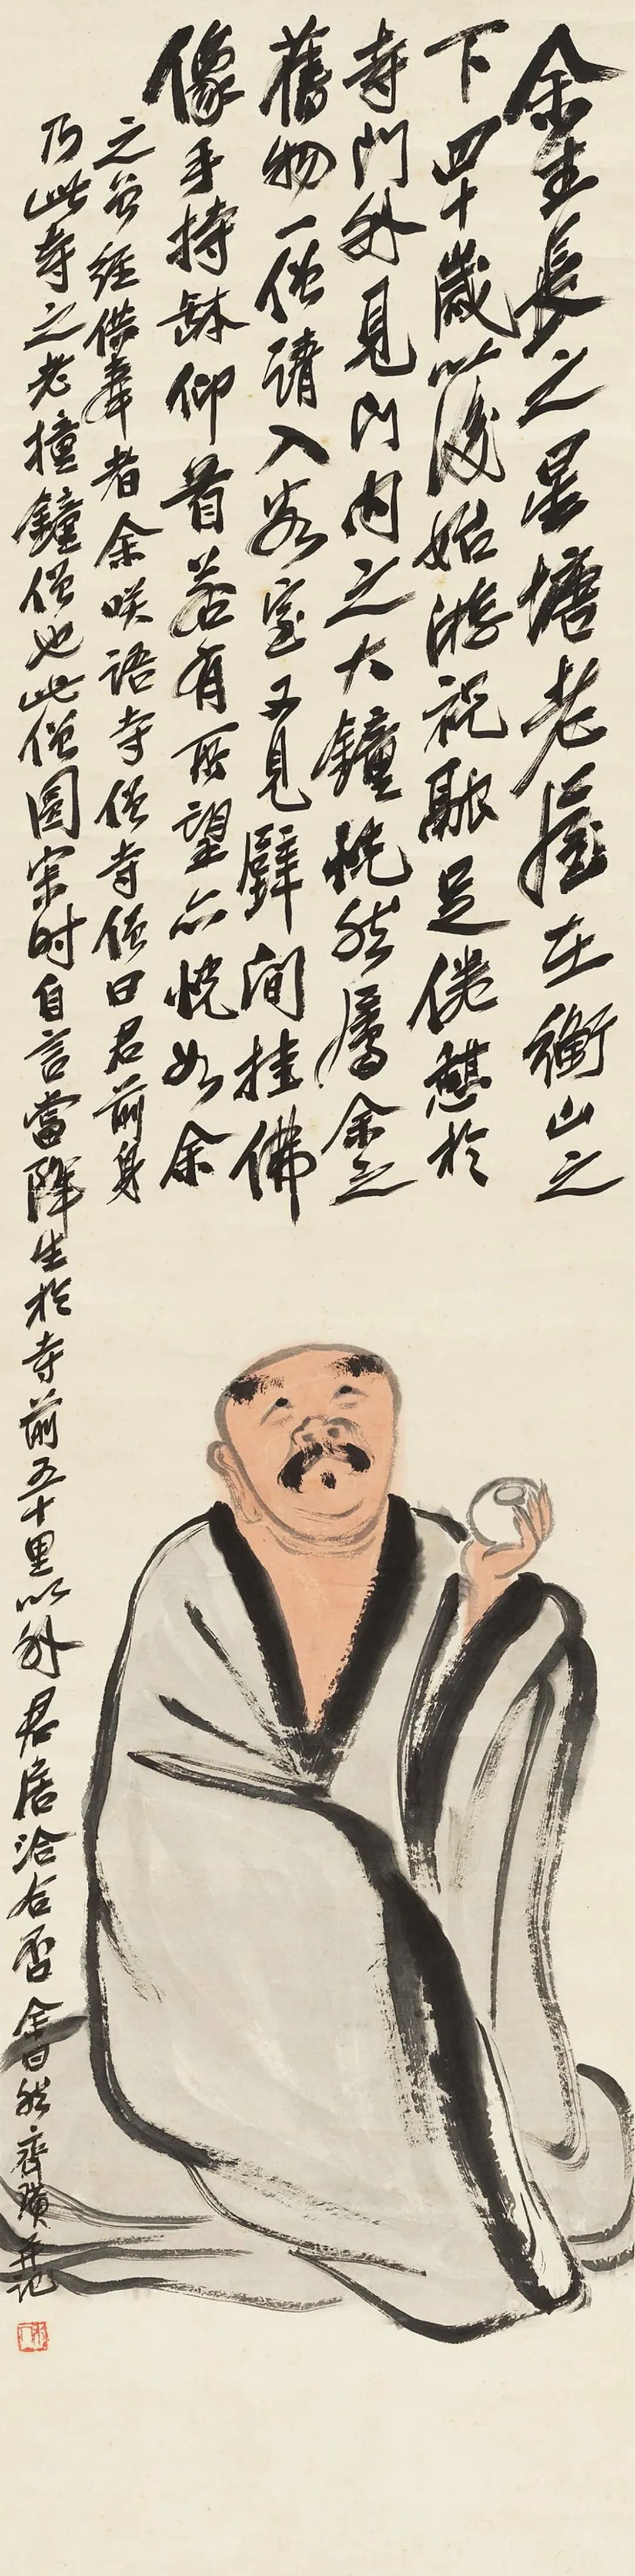 余生長之星塘老屋在衡山之
下四十歲以後始游祝融足倦憩於
寺門外見門內之大鐘恍然屬余之
舊物一僧請入客室又見壁間挂佛
像手持缽仰首若有所望亦恍如余
之曾經供奉者余咲語寺僧寺僧曰君前身
乃此寺之老撞鐘僧也此僧圓寂时自言當降生於寺前五十里以外君居洽合否余曰然齊璜并記